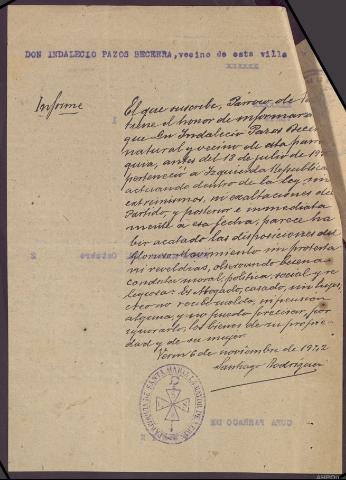 DON INDALECIO PAZOS BECERRA, vecino de esta villa
xxxxxx
Informe
El que suscribe, Párroco de
tiene el honor de informar a
que Dn Indalecio Pazos Bece
natural y vecino de esta parro
quia, antes del 18 de julio de 19
perteneció a Izquierda Republica
actuando dentro de la ley, sin
extremismos, ni exaltaciones de
Partido, y posterior e inmediata
mente a esa fecha, parece ha
ber acatado las disposiciones del
Glorioso Movimiento sin protesta
ni reveldias, observando buena
conducta moral, política, social y re
ligiosa. Es Abogado, casado, sin hijos,
creo no recibe sueldo, ni pension
alguna, y no puedo precisar, por
ignorarlo, los bienes de su propie
dad y de su mujer.
Verin 6 de noviembre de 1942
Santiago Rodriguez
PARROQUIA DE SANTA MARIA LA MAYOR DE VERIN
CURA PARROCO DE